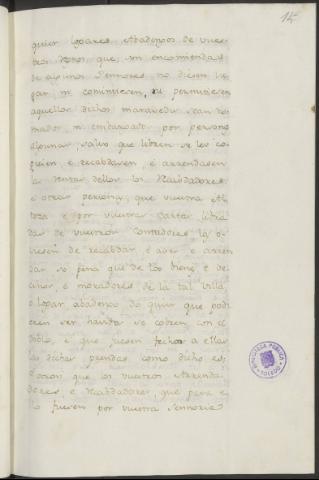 14
quier logares Abadengos de vues
tros Reynos que, ni encomiendas
de algunos Sennores, no diesen lu
gar, ni consintiesen, ni permitiesen
aquellos dichos maravedis sean to
mados, ni embargados por persona
alguna, salvo que libremente los co
gan, e recabdaren, e arrendasen
la Renta dellos los Recabdadores
e otras personas, que vuestra Al
teza e por vuestras Cartas libra
das de vuestros Contadores la o
viesen de recabdar, e aver e arren
dar so pena que de los bienes e ve
cinos, e moradores de la tal villa
o logar abadengo do quier que podi
eren ser havidos se cobren con el
doblo, e que fuesen fechas a ellas
las dichas prendas como dicho es:
los vuestros Arrenda
dores, e Recabdadores, que para e
llo fueren por vuestra Sennoria
BIBLIOTECA PUBLICA
TOLEDO